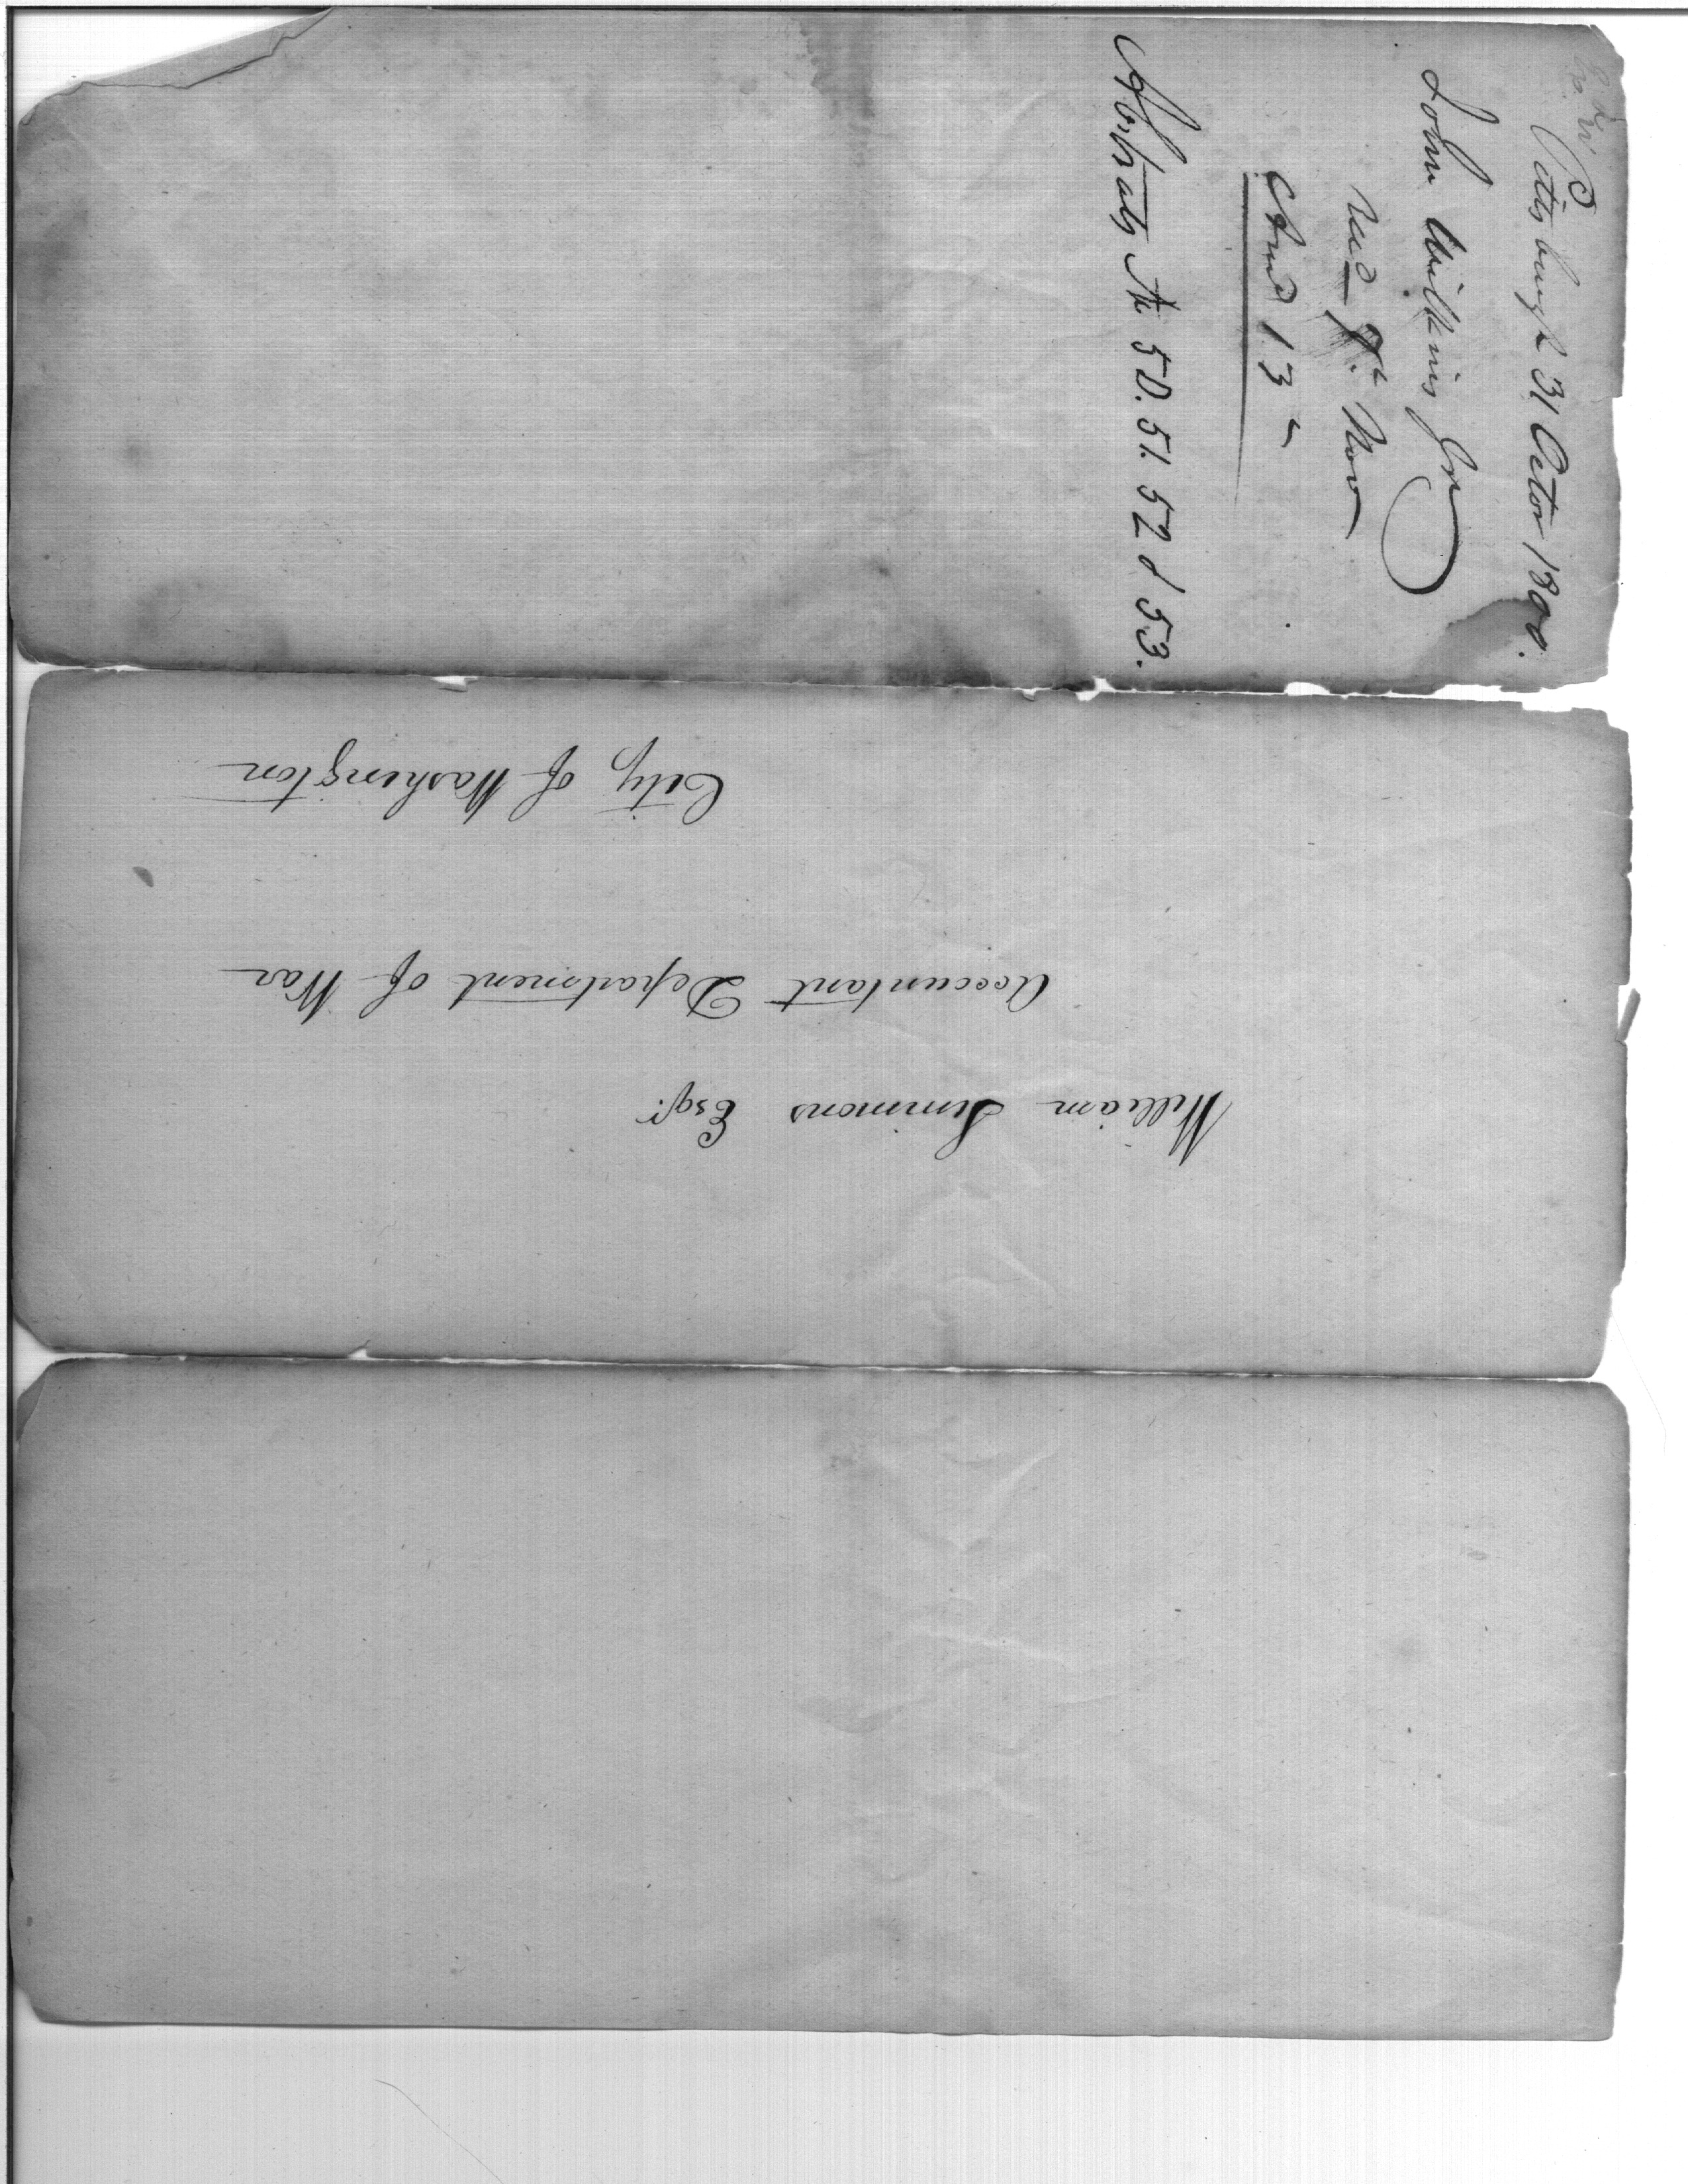 Pittsburgh 31 Octor 1800.
John Wilkins Jr
Recd 7t. Nov
Ansd 13 "
Abstracts No 50. 51. 52 & 53.
William Simmons Esqr.
Accountant Department of War
City of Washington